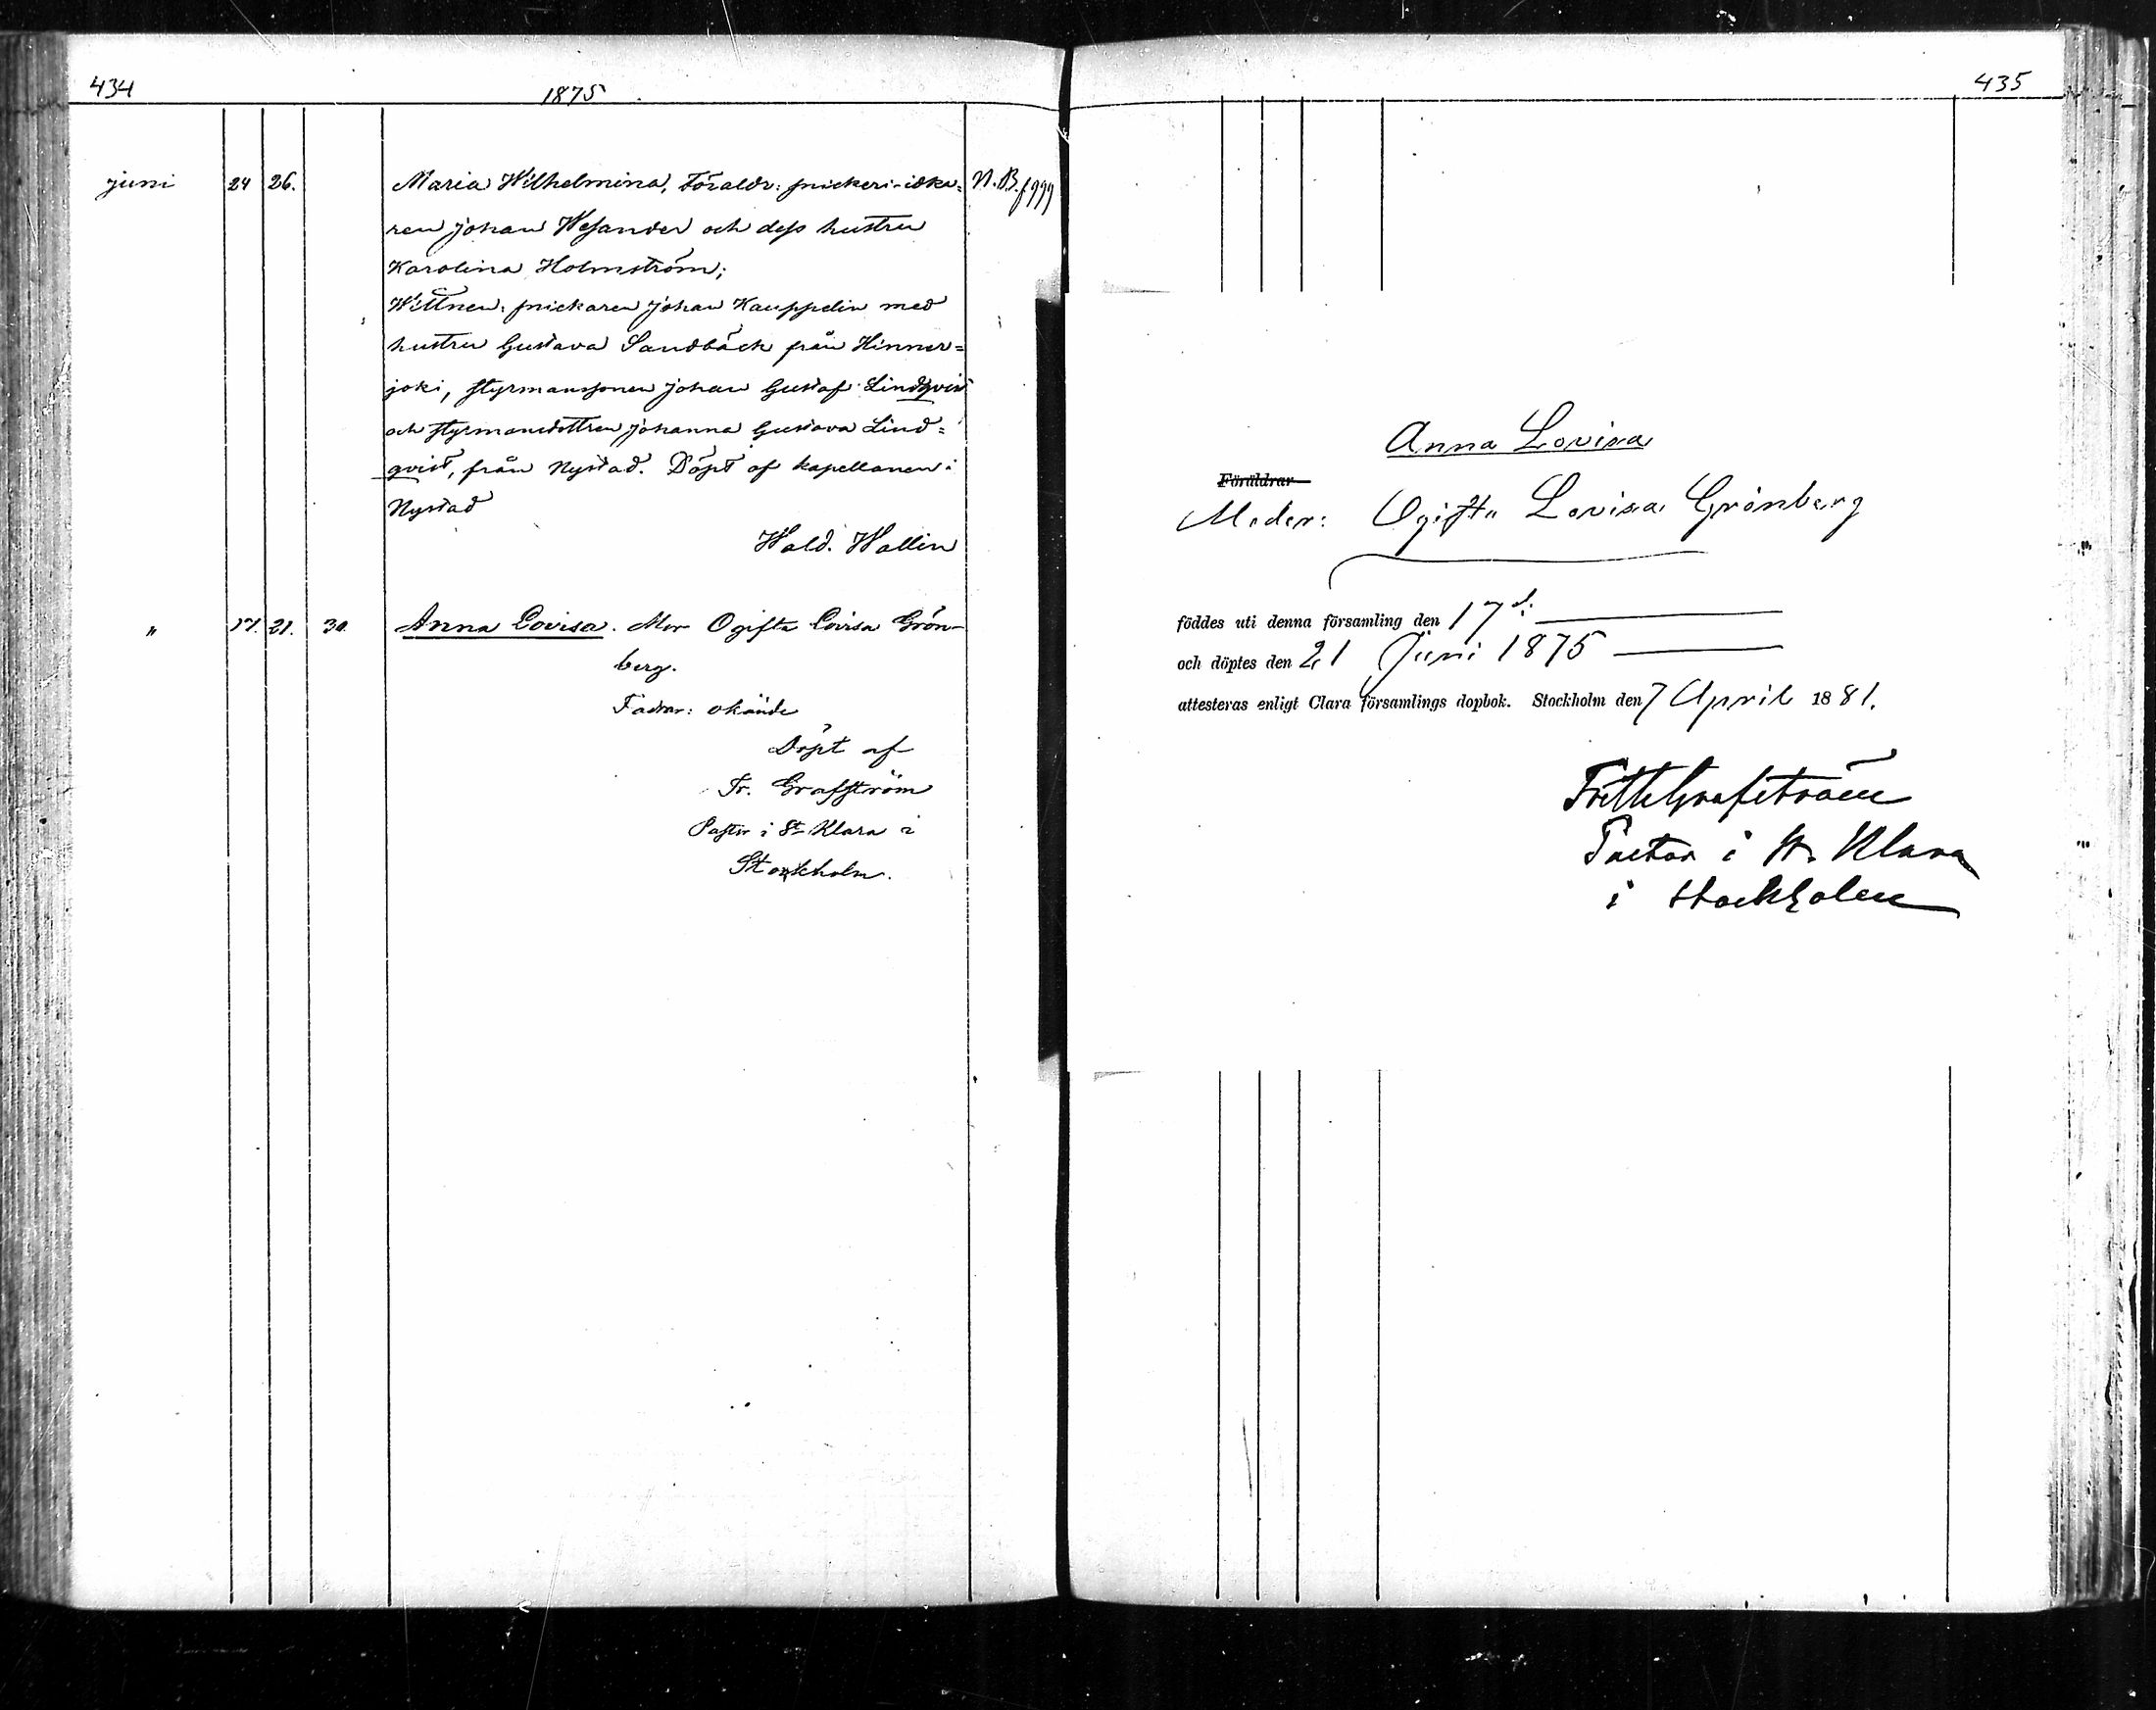 434
1875
juni 24 26. Maria Wilhelmina, Föräldr: snickeri-idka= N.B. f 999
ren Johan Wesander och dess hustru
Karolina Holmström;
Wittnen: snickaren Johan Kauppelin med
hustru Gustava Sandbäck från Hinner=
joki, styrmanssonen Johan Gustaf Lindqvist
och styrmansdottren Johanna Gustava Lind=
qvist, från Nystad. Döpt af kapellanen i
Nystad
Wald. Wallin
" 17. 21. 30. Anna Lovisa. Mor Ogifta Lovisa Grön-
berg.
Fadrar: okände
Döpt af
Fr. Grafström
Pastor i St Klara i
Stockholm.
435
Anna Lovisa
Föräldrar
Moder: Ogifta Lovisa Grönberg
föddes uti denna församling den 17d.
och döptes den 21 Juni 1875
attesteras enligt Clara församlings dopbok. Stockholm den 7 April 1881.
Grafström
Pastor i St. Klara
i Stockholm